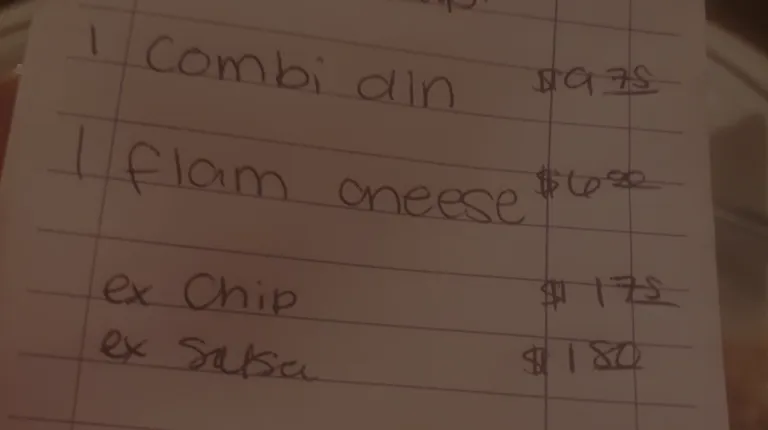 1 Combi din $9 75
1 flam cheese $6 00
ex Chip $ 1 75
ex Salsa $ 1 50